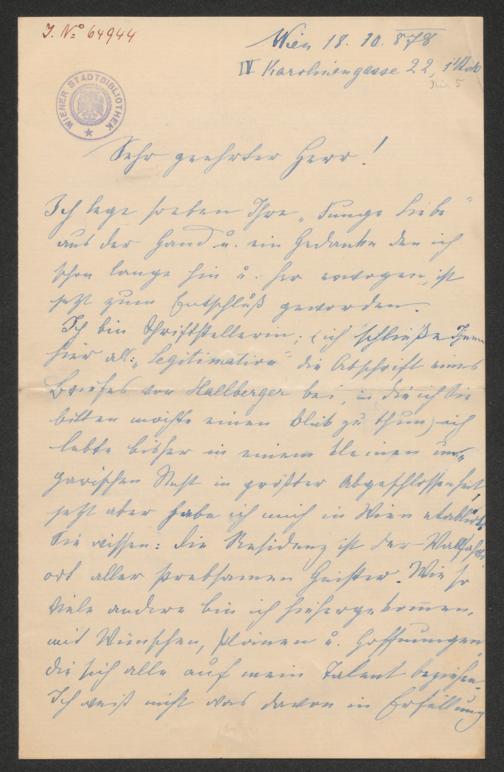 J. No 64944
Wien 18. 10. 878
IV Karolinengasse 22,
WIENER STADTBIBLIOTHEK
Sehr geehrter Herr!
Ich lege soeben Ihre „Junge Liebe"
aus der Hand u. ein Gedanke den ich
schon lange hin u. her erwogen, ist
jetzt zum Entschluß geworden.
Ich bin Schriftstellerin, (ich schließe Ihnen
hier als „Legitimation" die Abschrift eines
Briefes von Hallberger bei, in die ich Sie
bitten möchte einen Blick zu thun) ich
lebte bisher in einem kleinen un-
garischen Nest in größter Abgeschlossenheit,
jetzt aber habe ich mich in Wien etablirt.
Sie wissen: die Residenz ist der Wallfahrts-
ort aller strebsamen Geister. Wie so
viele andere bin ich hiehergekommen,
mit Wünschen, Plänen u. Hoffnungen
die sich alle auf mein Talent beziehen.
Ich weiß nicht was davon in Erfüllung